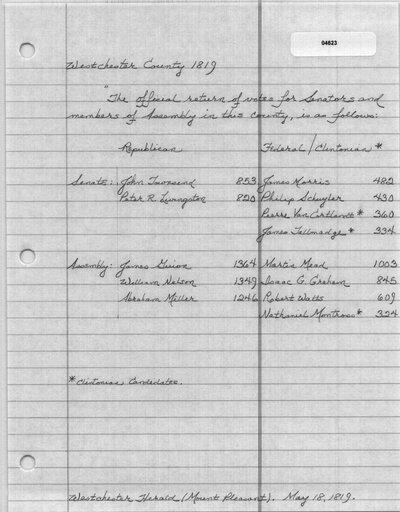 04623
Westchester County 1819
"The official return of votes for Senators and
members of Assembly in this County, is as follows:
Republican Federal/Clintonian *
Senate: John Townsend 853 James Morris 482
Peter R. Livingston 820 Philip Schuyler 430
Pierre Van Cortlandt * 360
James Tallmadge * 334
Assembly: James Guion 1364 Martin Mead 1003
William Nelson 1349 Isaac G. Graham 845
Abraham Miller 1246 Robert Watts 609
Nathaniel Montross * 324
* Clintonian Candidates.
Westchester Herald (Mount Pleasant). May 18, 1819.